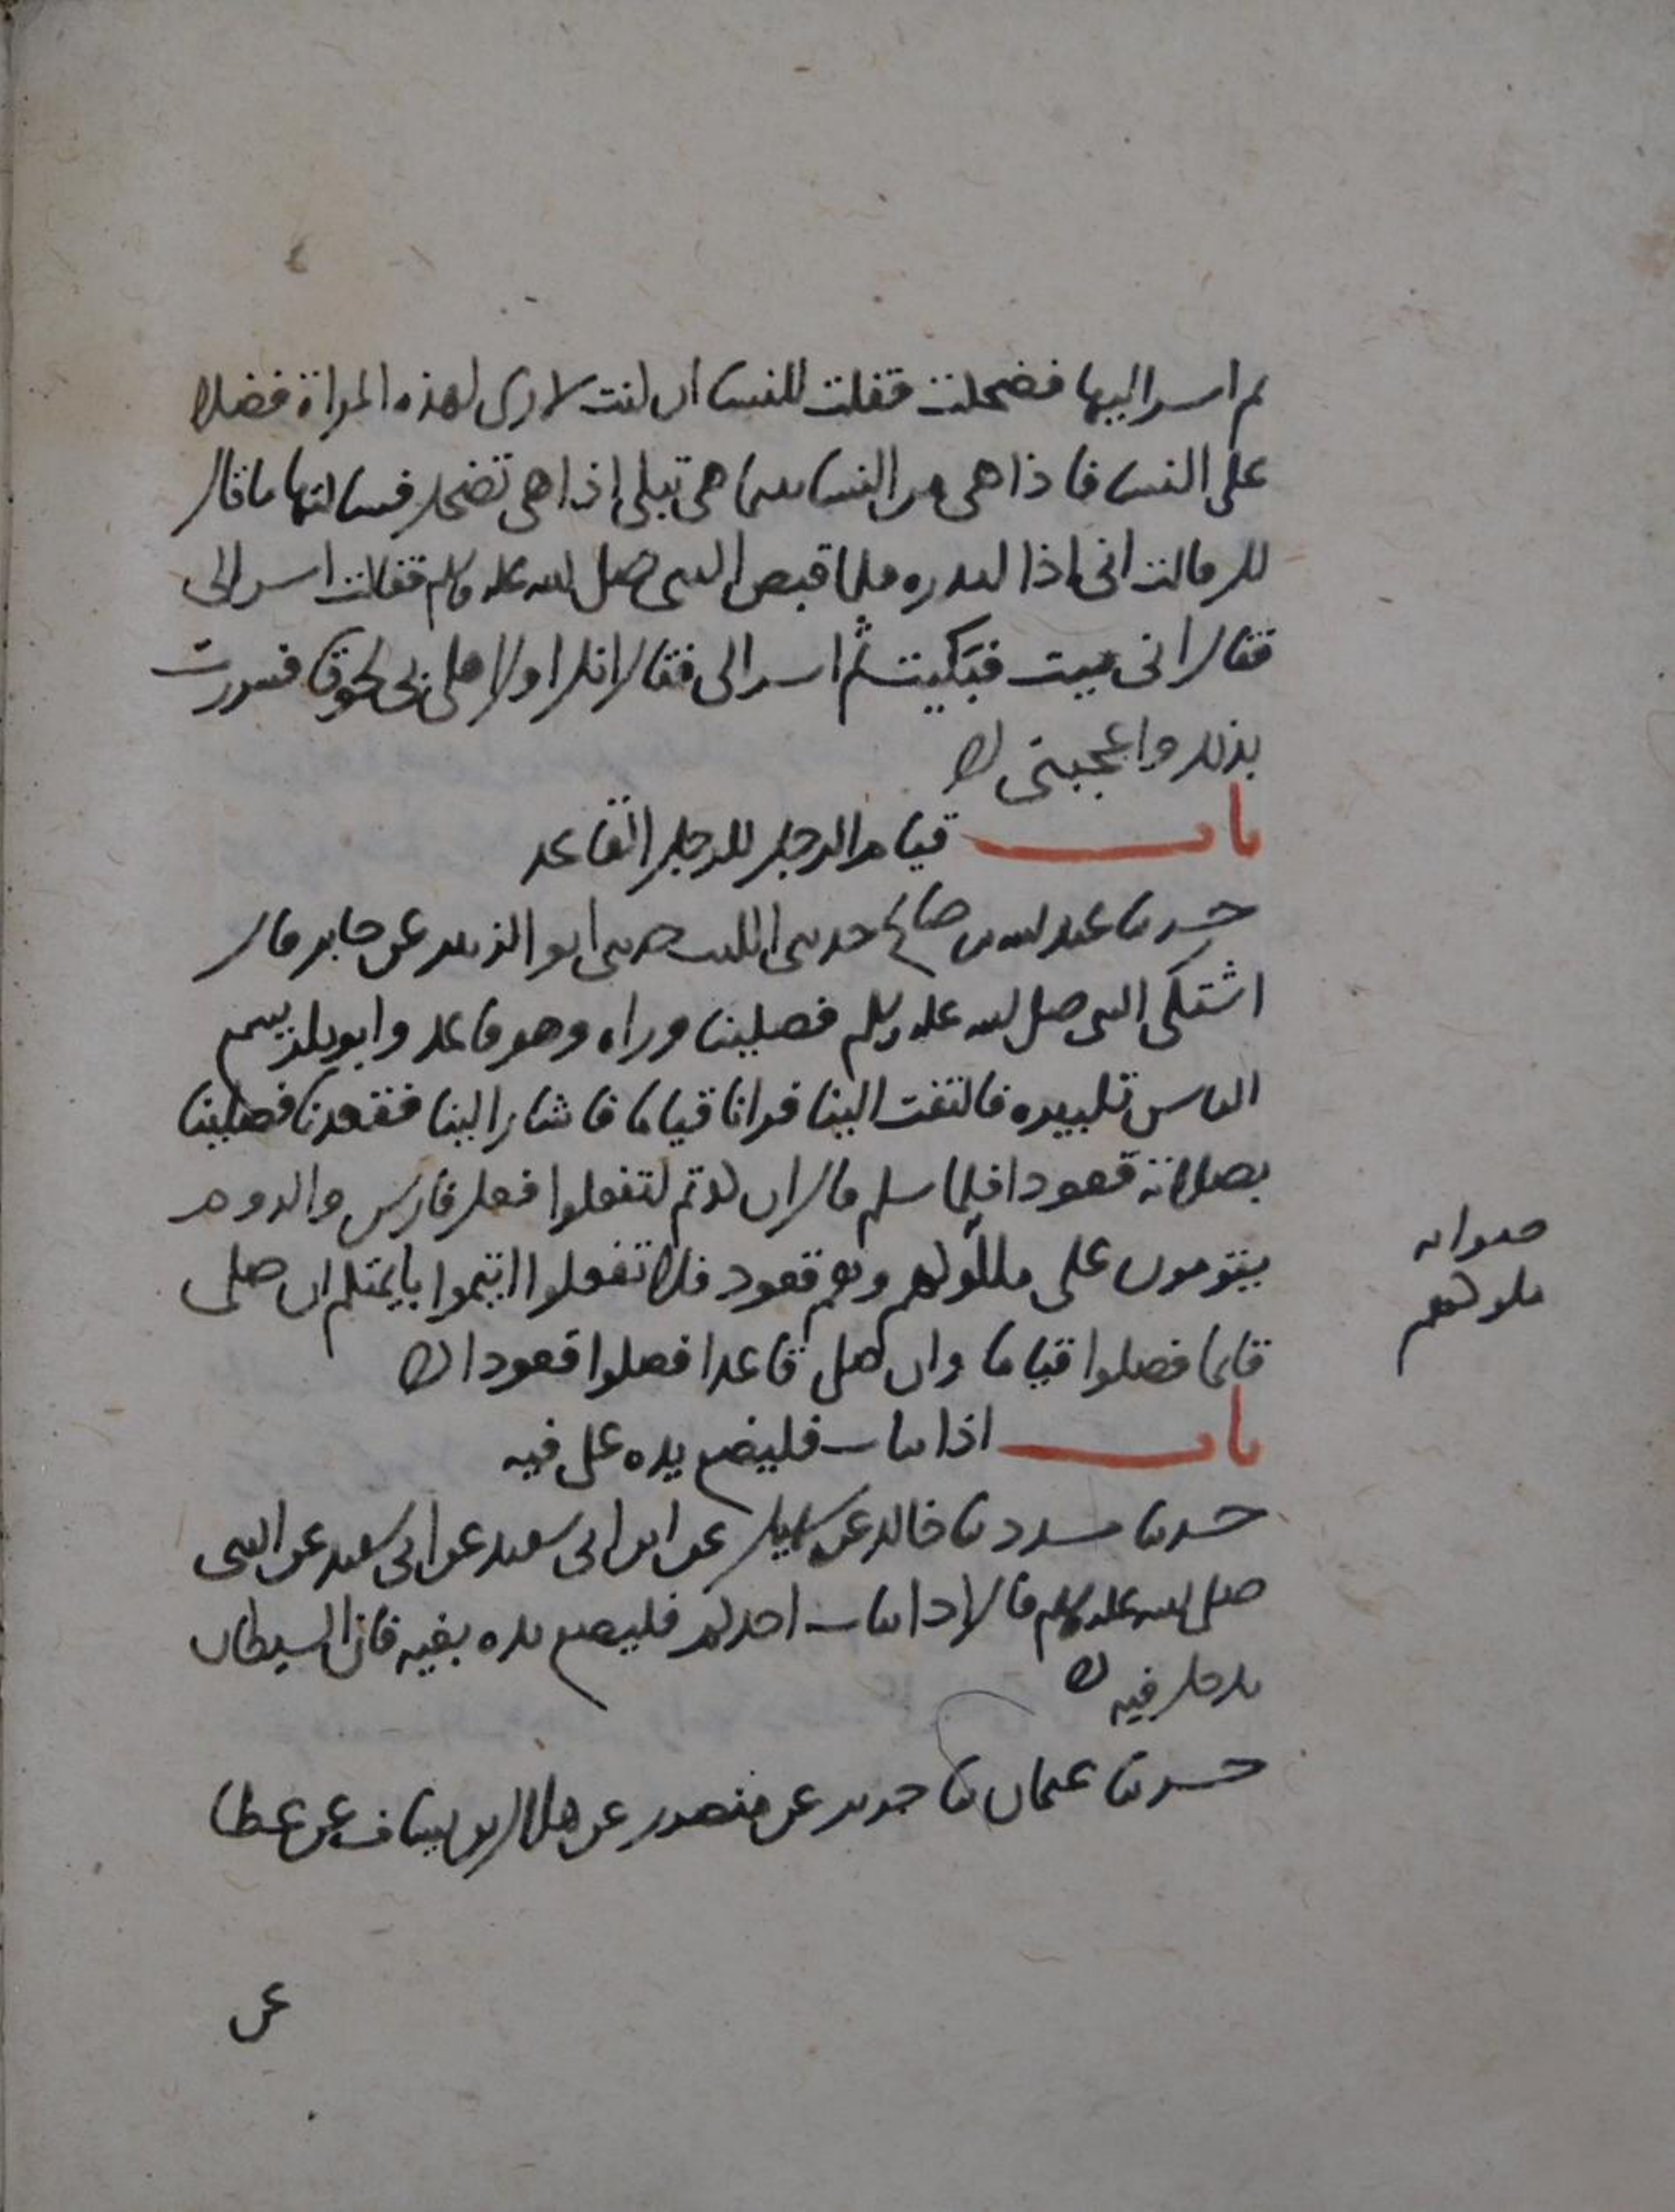 ثم اسر اليها فضحكت فقلت للنسا ان كنت لارى لهذه المراة فضلا
على النسا فاذا هى من النسا بينما هى تبكى اذا هى تضحك فسالتها ما قال
لك قالت انى اذا لبذره فلما قبض النبى صلى الله عليه وسلم فقالت اسر الى
فقال انى ميت فبكيت ثم اسر الى فقال انك اول اهلى بى لحوقا فسررت
بذلك واعجبنى
باب قيام الرجل للرجل القاعد
حدثنا عبد الله بن صالح حدثنى الليث حدثنى ابو الزبير عن جابر قال
اشتكى النبى صلى الله عليه وسلم فصلينا وراه وهو قاعد وابو بكر يسمع
الناس تكبيره فالتفت الينا فرانا قياما فاشار الينا فقعدنا فصلينا
بصلاته قعودا فلما سلم قال ان كدتم لتفعلوا فعل فارس والروم
يقومون على ملكولهم وهم قعود فلا تفعلوا ايتموا بايمتكم ان صلى
قايما فصلوا قياما وان صلى قاعدا فصلوا قعودا
صوابه
ملوكهم
باب اذا تثاب فليضع يده على فيه
حدثنا مسدد ثنا خالد عن سهيل عن ابن ابى سعيد عن ابى سعيد عن النبى
صلى الله عليه وسلم قال اذا تثاب احدكم فليضع يده بفيه فان الشيطان
يدخل فيه
حدثنا عثمان ثنا جرير عن منصور عن هلال بن يساف عن عطا
عن